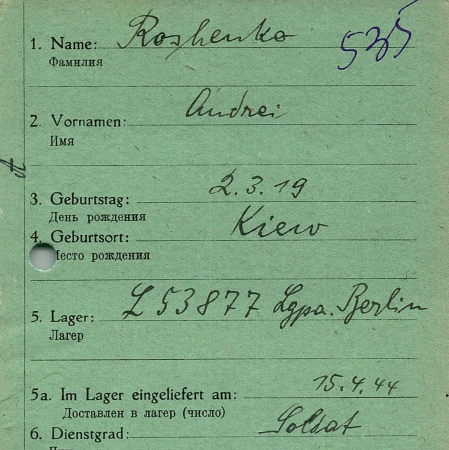 1. Name: Roshenko 535
Фамилия
2. Vornamen: Andrei
Имя
3. Geburtstag: 2.3.19
День рождения
4. Geburtsort: Kiew
Место рождения
5. Lager: L 53877 Lgpa. Berlin
Лагер
5a. Im Lager eingeliefert am: 15.4.44
Доставлен в лагер (число)
6. Dienstgrad: Soldat